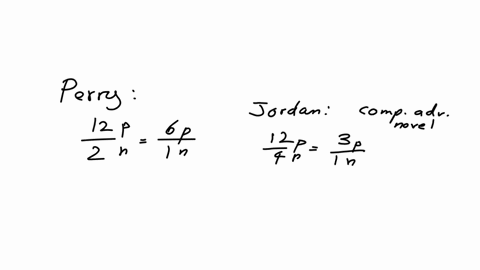 Perry:
12 p / 2 n = 6p / 1 n
Jordan: comp. adv. novel
12 p / 4 n = 3p / 1 n